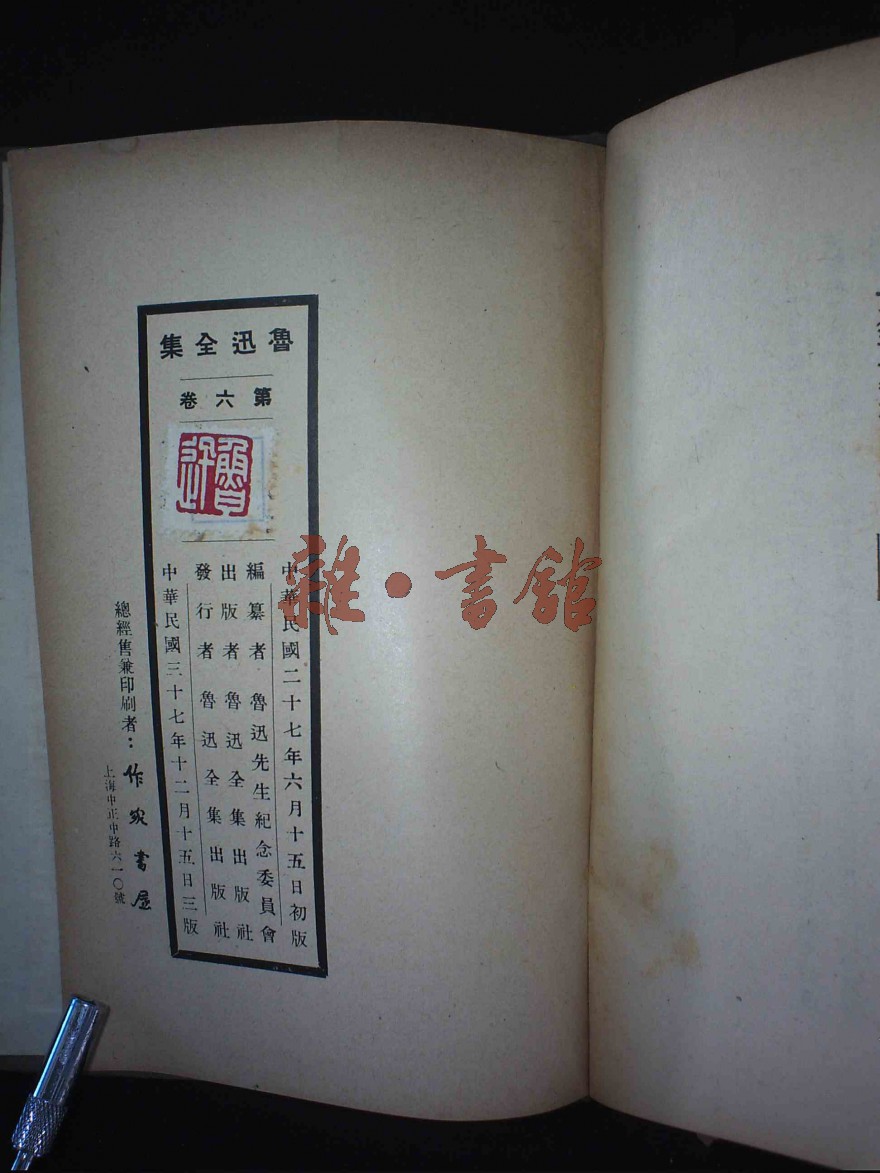 魯迅全集
第六卷
魯迅
中華民國二十七年六月十五日初版
編纂者 魯迅先生紀念委員會
出版者 魯迅全集出版社
發行者 魯迅全集出版社
中華民國三十七年十二月十五日三版
總經售兼印刷者：作家書屋
上海中正中路六一〇號
雜·書館